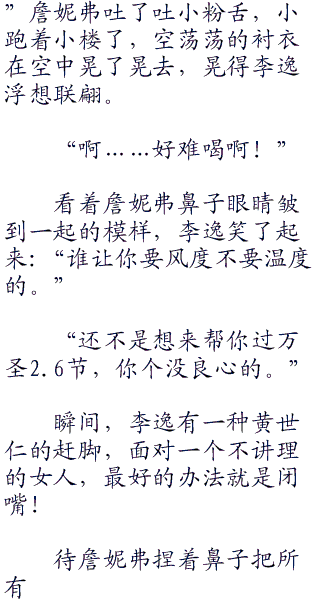 ”詹妮弗吐了吐小粉舌，小
跑着小楼了，空荡荡的衬衣
在空中晃了晃去，晃得李逸
浮想联翩。
“啊……好难喝啊！”
看着詹妮弗鼻子眼睛皱
到一起的模样，李逸笑了起
来：“谁让你要风度不要温度
的。”
“还不是想来帮你过万
圣2.6节，你个没良心的。”
瞬间，李逸有一种黄世
仁的赶脚，面对一个不讲理
的女人，最好的办法就是闭
嘴！
待詹妮弗捏着鼻子把所
有